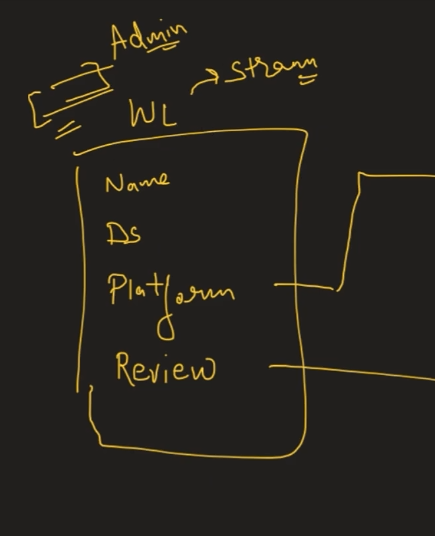 Admin
WL → Stream
Name
Ds
Platform
Review